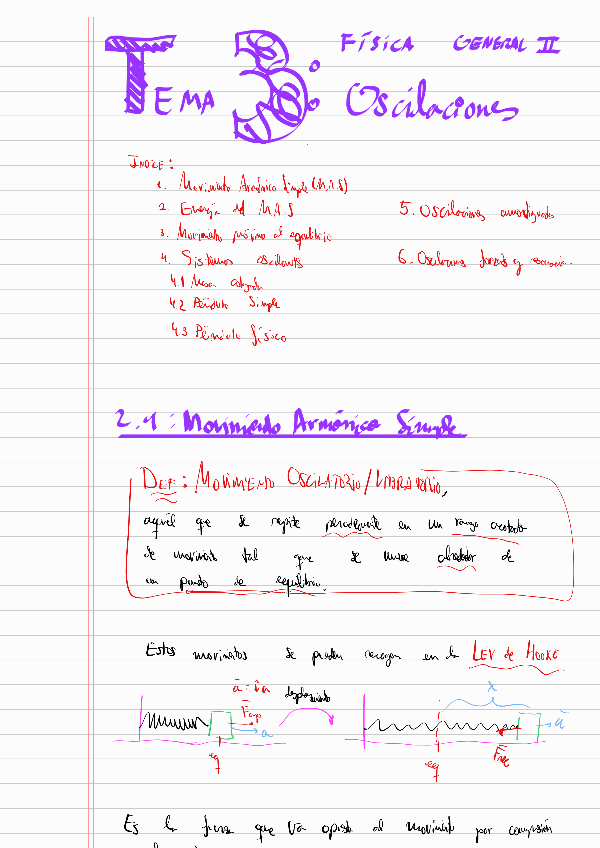 FÍSICA GENERAL II
TEMA 3: Oscilaciones
INDICE:
1. Movimiento Armónico Simple (M.A.S)
2. Energía del M.A.S
3. Movimiento próximo al equilibrio
4. Sistemas oscilants
4.1 Masa colgada
4.2 Péndulo Simple
4.3 Péndulo físico
5. Oscilaciones amortiguadas
6. Oscilaciones forzads y resonancia.
2.1: Movimiento Armónico Simple
DEF: MOVIMIENTO OSCILATORIO/VIBRATORIO,
aquél que se repite en un rango acotado
de movimiento tal que se mueve alrededor de
un punto de equilibrio.
Estos movimientos se pueden recoger en la LEY de HOOKE
desplazamiento
x
a
eq
a
eq
Es la fuerza que va opuesta al movimiento por compresión